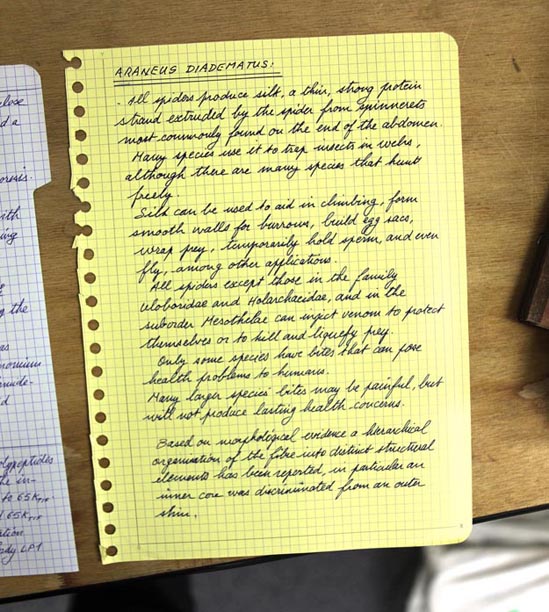 ulose
d a
orosis.
with
ing
g the
as
monium
nnide-
d
lypeptides
he in-
to ESK
d ESK
ation
ady LP1
ARANEUS DIADEMATUS:
- All spiders produce silk, a thin, strong protein
strand extruded by the spider from spinnerets
most commonly found on the end of the abdomen.
Many species use it to trap insects in webs,
although there are many species that hunt
freely.
Silk can be used to aid in climbing, form
smooth walls for burrows, build egg sacs,
wrap prey, temporarily hold sperm, and even
fly, among other applications.
All spiders except those in the family
uloboridae and Holarchaeidae, and in the
suborder Mesothelae can inject venom to protect
themselves or to kill and liquefy prey.
Only some species have bites that can pose
health problems to humans.
Many larger species bites may be painful, but
will not produce lasting health concerns.
Based on morphological evidence a hierarchical
organization of the fibre into distinct structural
elements has been reported, in particular an
inner core was discriminated from an outer
skin.